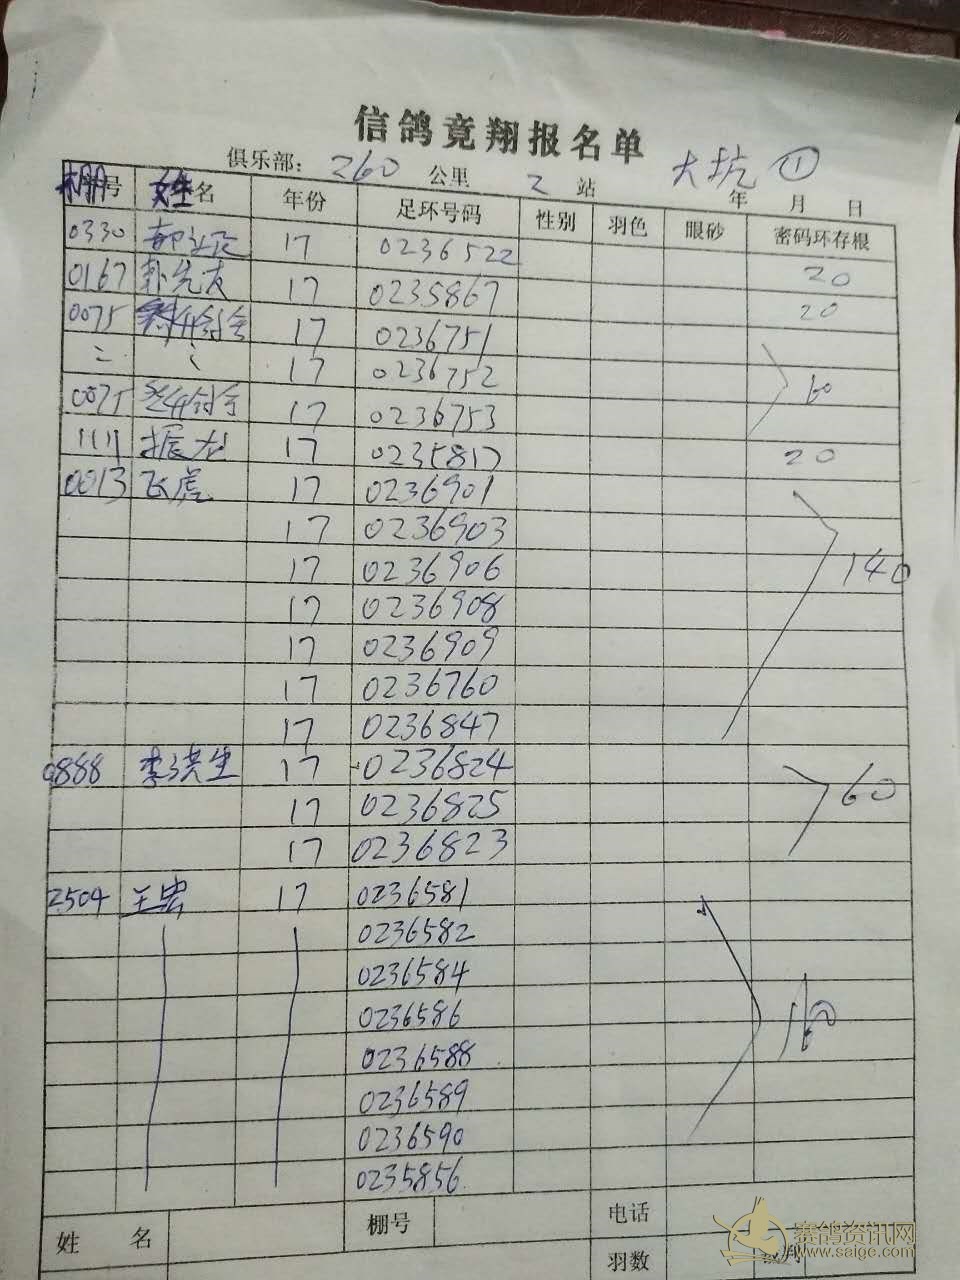 信鸽竞翔报名单
俱乐部： 260 公里 2 站 大坑 ①
年 月 日
棚号 姓名 年份 足环号码 性别 羽色 眼砂 密码环存根
0330 17 0236522 20
0167 卦先友 17 0235867 20
0075 17 0236751
17 0236752 60
0075 17 0236753
1111 振龙 17 0235817 20
0013 飞虎 17 0236901
17 0236903
17 0236906 140
17 0236908
17 0236909
17 0236760
17 0236847
0888 李洪生 17 0236824
17 0236825 60
17 0236823
2504 王宏 17 0236581
0236582
0236584
0236586
0236588
0236589
0236590
0235856
姓名 棚号 电话
羽数 裁判
赛鸽资讯网
www.saige.com